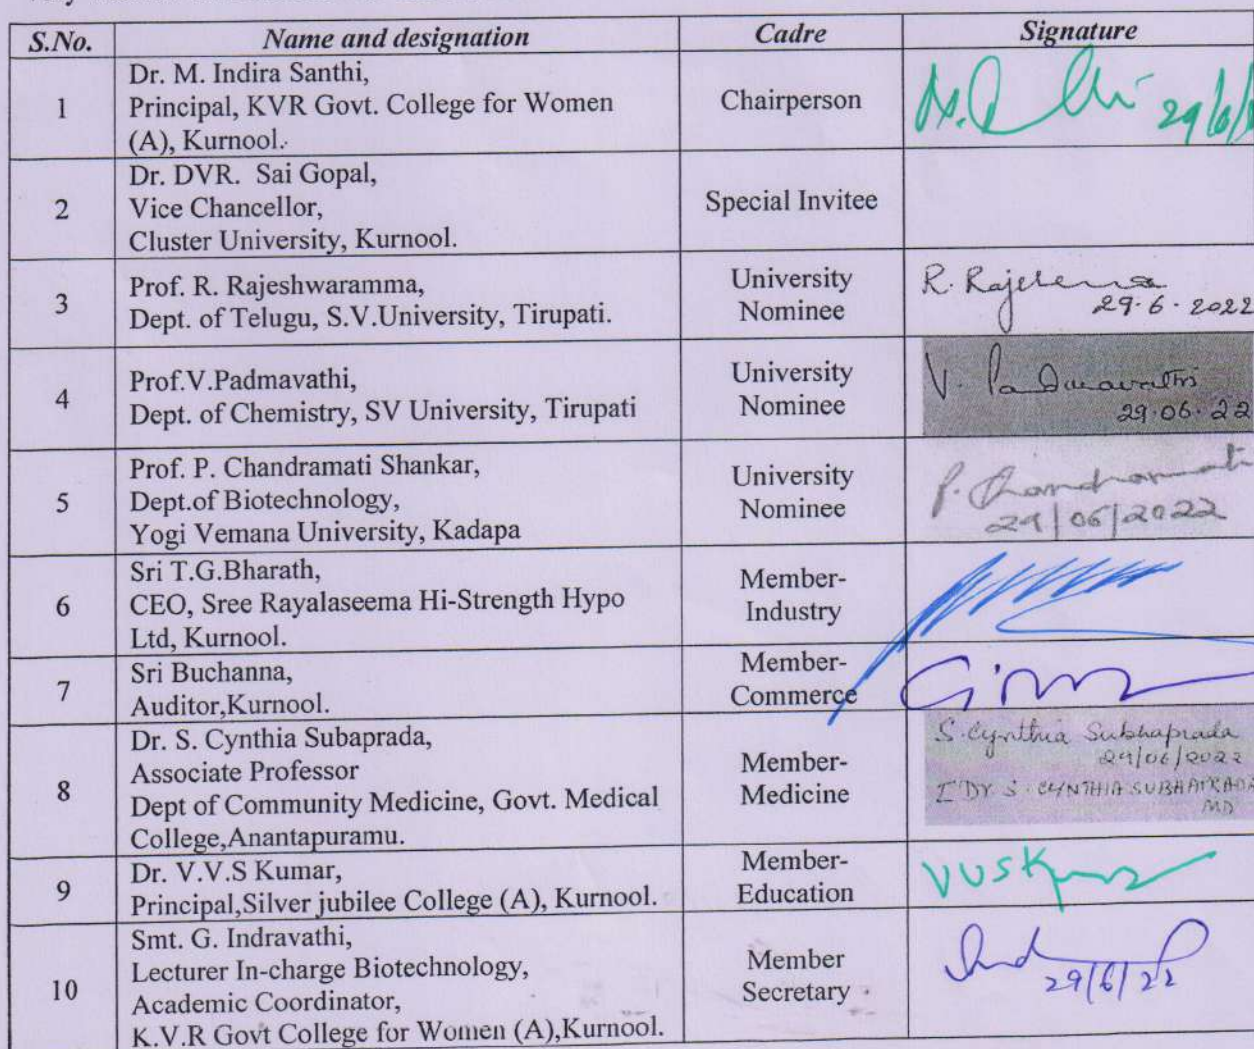 S.No. Name and designation Cadre Signature
1 Dr. M. Indira Santhi,
Principal, KVR Govt. College for Women
(A), Kurnool.
Chairperson
Dr. DVR. Sai Gopal,
2 Vice Chancellor,
Cluster University, Kurnool.
Special Invitee
3 Prof. R. Rajeshwaramma,
Dept. of Telugu, S.V.University, Tirupati.
University
Nominee
R.
29.6.2022
4 Prof.V.Padmavathi,
Dept. of Chemistry, SV University, Tirupati
University
Nominee
V. Padmavathi
29.06.22
5 Prof. P. Chandramati Shankar,
Dept.of Biotechnology,
Yogi Vemana University, Kadapa
University
Nominee
P. Chandramati
29/06/2022
6 Sri T.G.Bharath,
CEO, Sree Rayalaseema Hi-Strength Hypo
Ltd, Kurnool.
Member-
Industry
7 Sri Buchanna,
Auditor,Kurnool.
Member-
Commerce
8 Dr. S. Cynthia Subaprada,
Associate Professor
Dept of Community Medicine, Govt. Medical
College,Anantapuramu.
Member-
Medicine
S. Cynthia Subhaprada
29/06/2022
DR. S. CYNTHIA SUBHAPRADA
MD
9 Dr. V.V.S Kumar,
Principal,Silver jubilee College (A), Kurnool.
Member-
Education
10 Smt. G. Indravathi,
Lecturer In-charge Biotechnology,
Academic Coordinator,
K.V.R Govt College for Women (A),Kurnool.
Member
Secretary
29/6/22